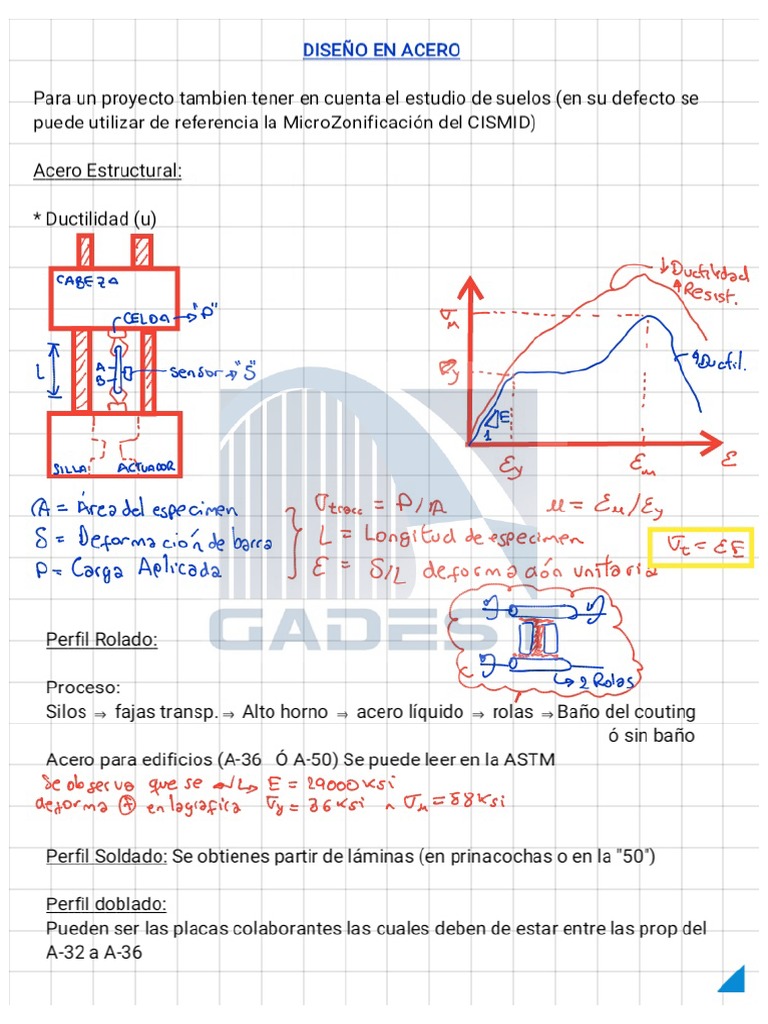 DISEÑO EN ACERO
Para un proyecto tambien tener en cuenta el estudio de suelos (en su defecto se
puede utilizar de referencia la MicroZonificación del CISMID)
Acero Estructural:
* Ductilidad (u)
CABEZA
CELDA → "P"
L
A
B
sensor → "S"
SILLA
ACTUADOR
↓ Ductilidad
↑ Resist.
σu
σy
↑Ductil.
E
1
εy
εu
ε
A = Área del especimen
δ = Deformación de barra
P = Carga Aplicada
σtracc = P/A
L = Longitud de especimen
ε = δ/L deformación unitaria
u = εu/εy
σt = εE
2 Rolas
GADES
Perfil Rolado:
Proceso:
Silos → fajas transp. → Alto horno → acero líquido → rolas → Baño del couting
ó sin baño
Acero para edificios (A-36 Ó A-50) Se puede leer en la ASTM
Se observa que se
deforma + en la grafica
E = 29000 ksi
σy = 36 ksi ∧ σu = 58 ksi
Perfil Soldado: Se obtienes partir de láminas (en prinacochas o en la "50")
Perfil doblado:
Pueden ser las placas colaborantes las cuales deben de estar entre las prop del
A-32 a A-36